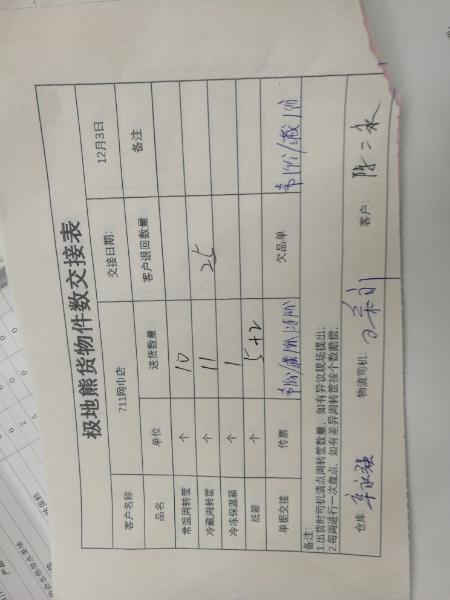 极地熊货物件数交接表
客户名称 711网巾店 交接日期: 12月3日
品名 单位 送货数量 客户退回数量 备注
常温周转筐 个 10
冷藏周转筐 个 11 25
冷冻保温箱 个 1
纸箱 个 5+2
单据交接 传票 欠品单
备注:
1.出货时司机清点周转筐数量,如有异议现场提出;
2.每周进行一次盘点,如有差异周转筐按个数赔偿;
仓库: 物流司机: 客户: 陈二永